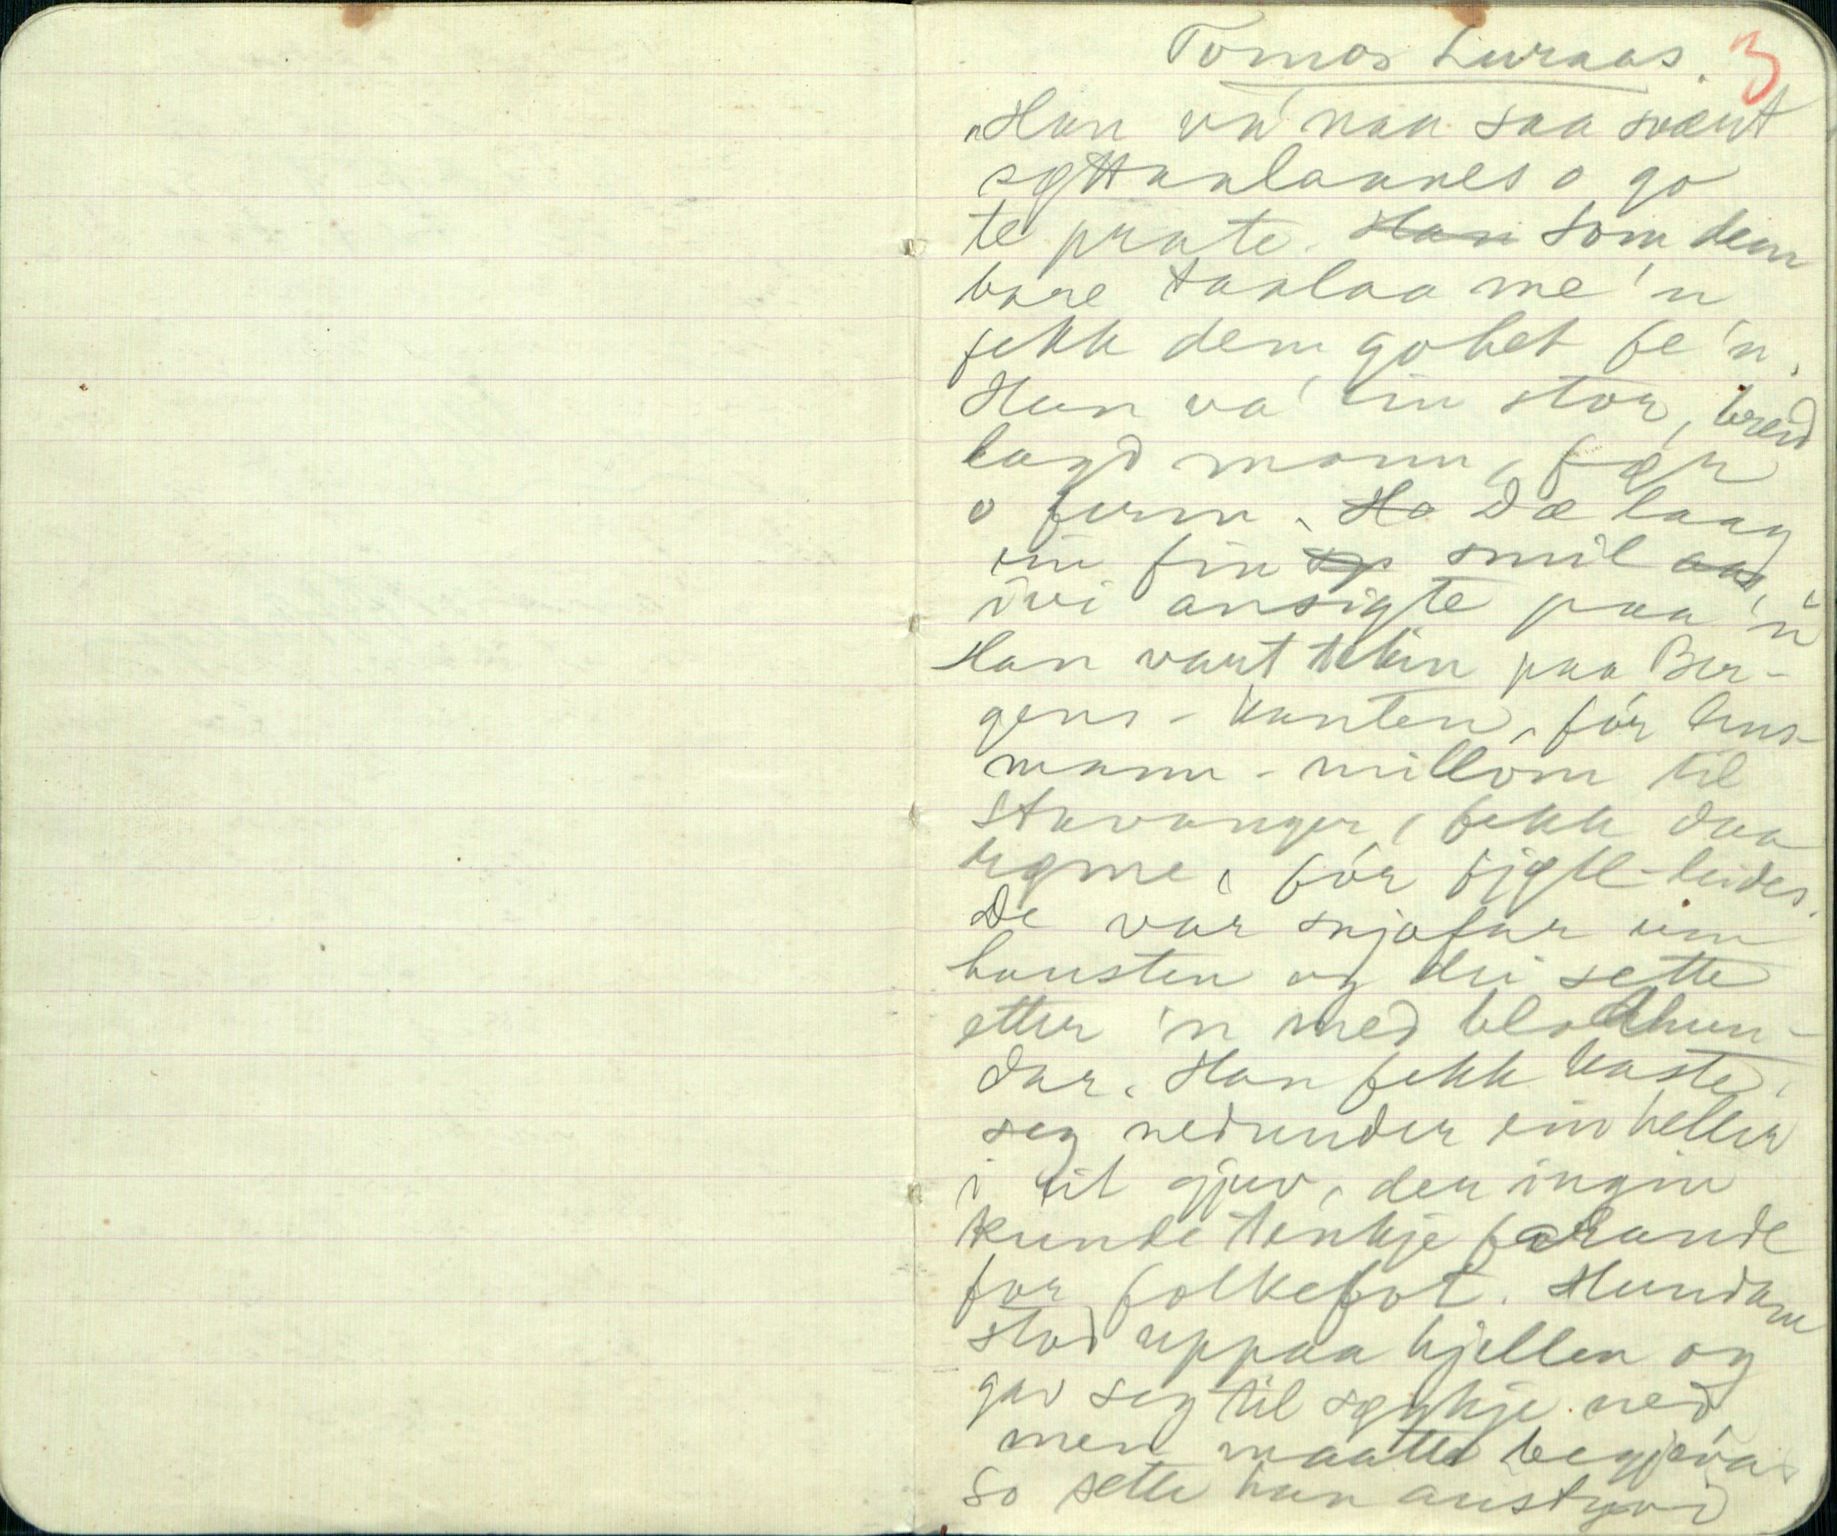 Tomos Luraas. 3
"Han va' naa saa svært
sǫttaalaanes o go
te prate. Han Som dem
bare taalaa me 'n
fekk dem gohet fe 'n.
Han va' ein stor, breid
lagd mann, fǫr
o ferm. Ha Dæ laag
ein fin sp smil aas,
ivi ansigte paa 'n
Han vart tekin paa Ber-
gens-kanten, fór lens-
mann-millom til
Stavanger, fekk daa
rǫme, fór fjell-leides.
De var snjofar um
hausten og dei sette
etter 'n med blodhun-
dar. Han fekk kaste
seg nedunder ein heller
i eit gjuv, der ingin
kunde tenkje farande
for folkefot. Hundan
stod uppaa hjellen og
gav seg til sǫkkje ned
men maatte begjeva
so sette han austyvi